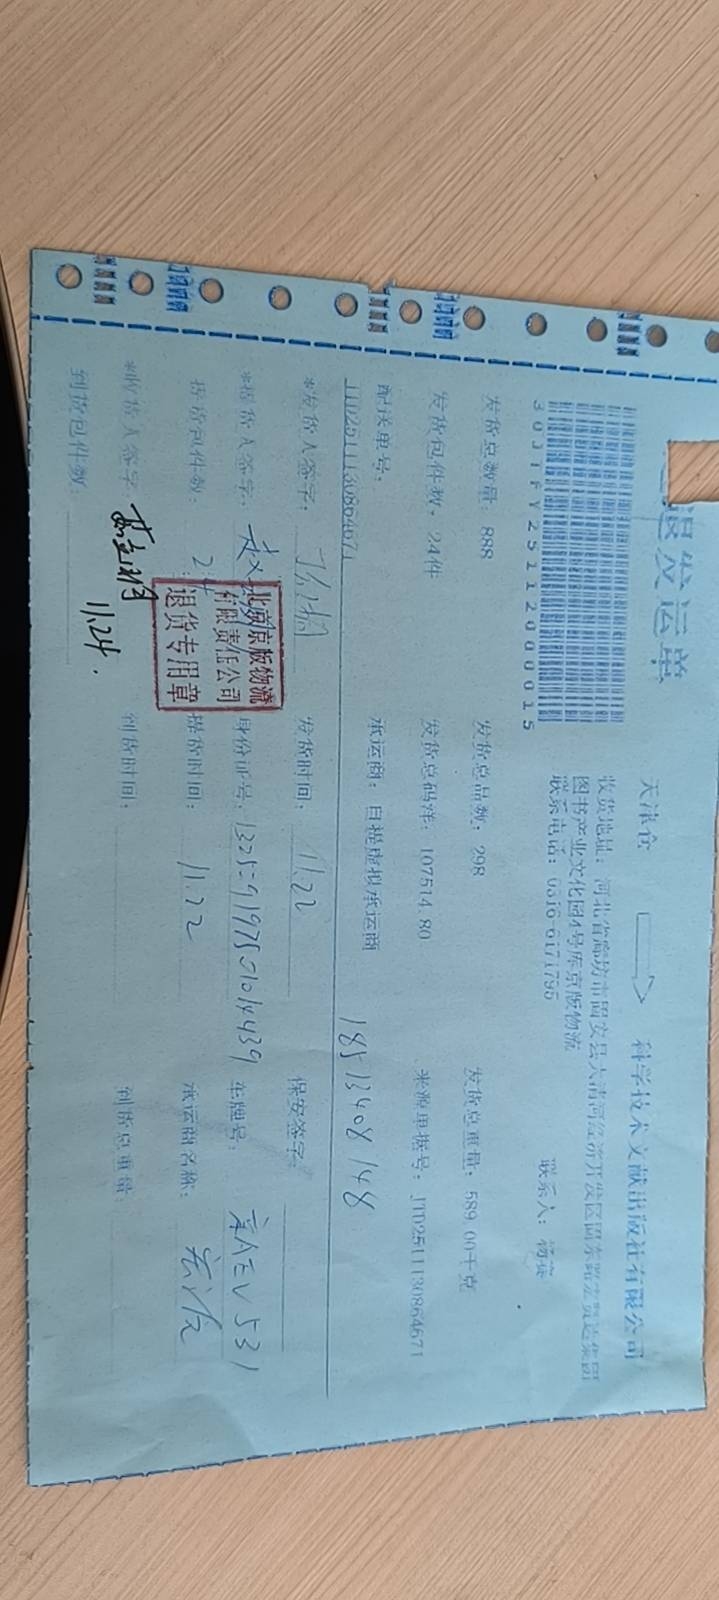 退发运单
天津仓
科学技术文献出版社有限公司
收货地址：河北省廊坊市固安县大清河经济开发区固东路宏贸达集团
图书产业文化园4号库京版物流
联系电话：0316-6171795
联系人：
30JTFY251120000015
发货总数量：888
发货总品数：298
发货总重量：589.00千克
发货包件数：24件
发货总码洋：107514.80
来源单据号：JTD25111130864671
配送单号：
承运商：自提虚拟承运商
18513408148
*发货人签字：
发货时间：11.22
保安签字：
*提货人签字：
身份证号：
车牌号：
提货包件数：24
提货时间：11.22
承运商名称：
*收货人签字：
11.24.
到货时间：
到货总重量：
到货包件数：
北京京版物流
有限责任公司
退货专用章